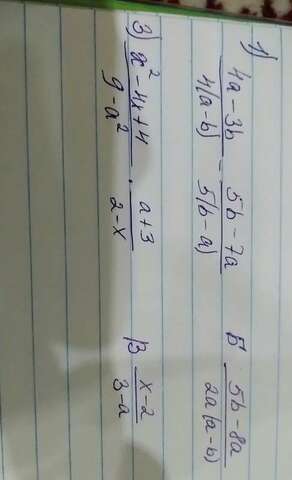 1) (4a-3b)/(4(a-b)) - (5b-7a)/(5(b-a)) Б (5b-8a)/(2a(a-b))
3) (x²-4x+4)/(9-a²) · (a+3)/(2-x) В (x-2)/(3-a)